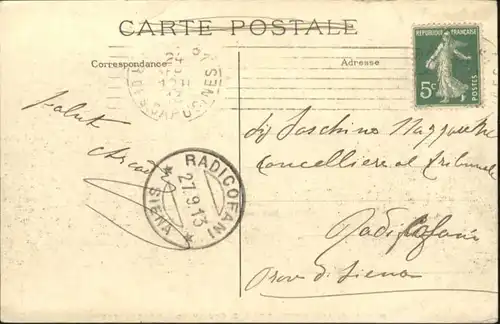 CARTE POSTALE
Correspondance
Adresse
REPUBLIQUE FRANÇAISE
5c
POSTES
CAPUCINES
Saluti
RADICOFANI
27.9.13
* SIENA *
Cancelliere al Tribunale
Radicofani
Prov di Siena